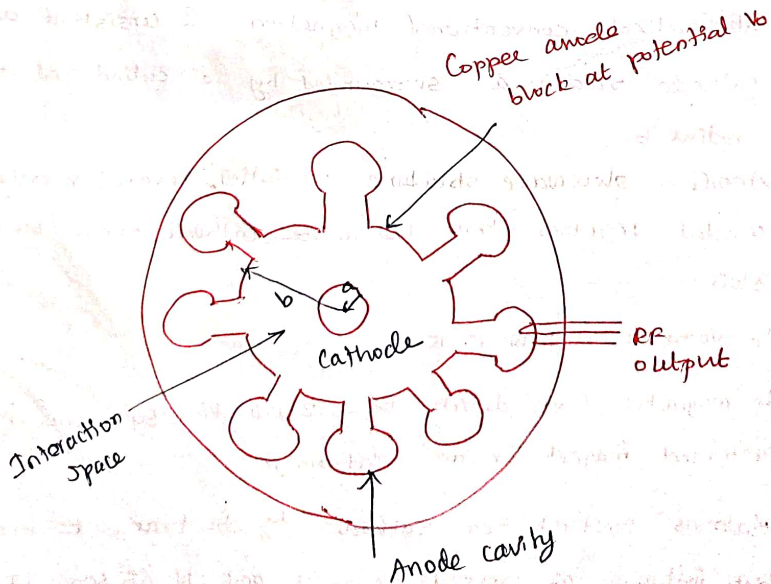 Copper anode
block at potential Vo
a
b
Cathode
RF
output
Interaction
space
Anode cavity